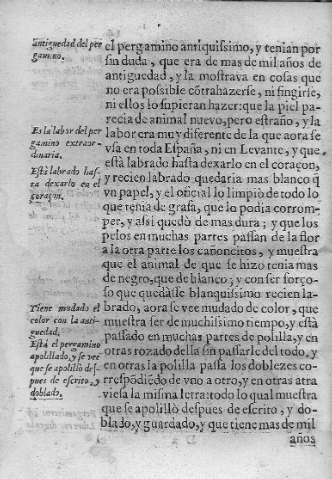 antiguedad del per
gamino.
el pergamino antiquissimo, y tenian por
sin duda, que era de mas de mil años de
antiguedad, y la mostrava en cosas que
no era possible cõtrahazerse, ni fingirse,
ni ellos lo supieran hazer: que la piel pa-
recia de animal nuevo, pero estraño, y la
Es la labor del per
gamino extraor-
dinaria.
labor era muy diferente de la que aora se
vsa en toda España, ni en Levante, y que
Está labrado has
ta dexarlo en el
coraçon.
està labrado hasta dexarlo en el coraçon,
y recien labrado quedaria mas blanco q̃
vn papel, y el oficial lo limpiò de todo lo
que tenia de grasa, que lo podia corrom-
per, y assi quedò de mas dura; y que los
pelos en muchas partes passan de la flor
a la otra parte los cañoncitos, y muestra
que el animal de que se hizo tenia mas
de negro, que de blanco; y con ser forço-
so que quedasse blanquissimo recien la-
Tiene mudado el
color con la anti-
guedad.
brado, aora se vee mudado de color, que
muestra ser de muchissimo tiempo, y està
Està el pergamino
apolillado, y se vee
que se apolillò des-
pues de escrito, y
doblado.
passado en muchas partes de polilla, y en
otras rozado della sin passarle del todo, y
en otras la polilla passa los doblezes co-
rrespõdiẽdo de vno a otro, y en otras atra
viessa la misma letra: todo lo qual muestra
que se apolillò despues de escrito, y do-
blado, y guardado, y que tiene mas de mil
años